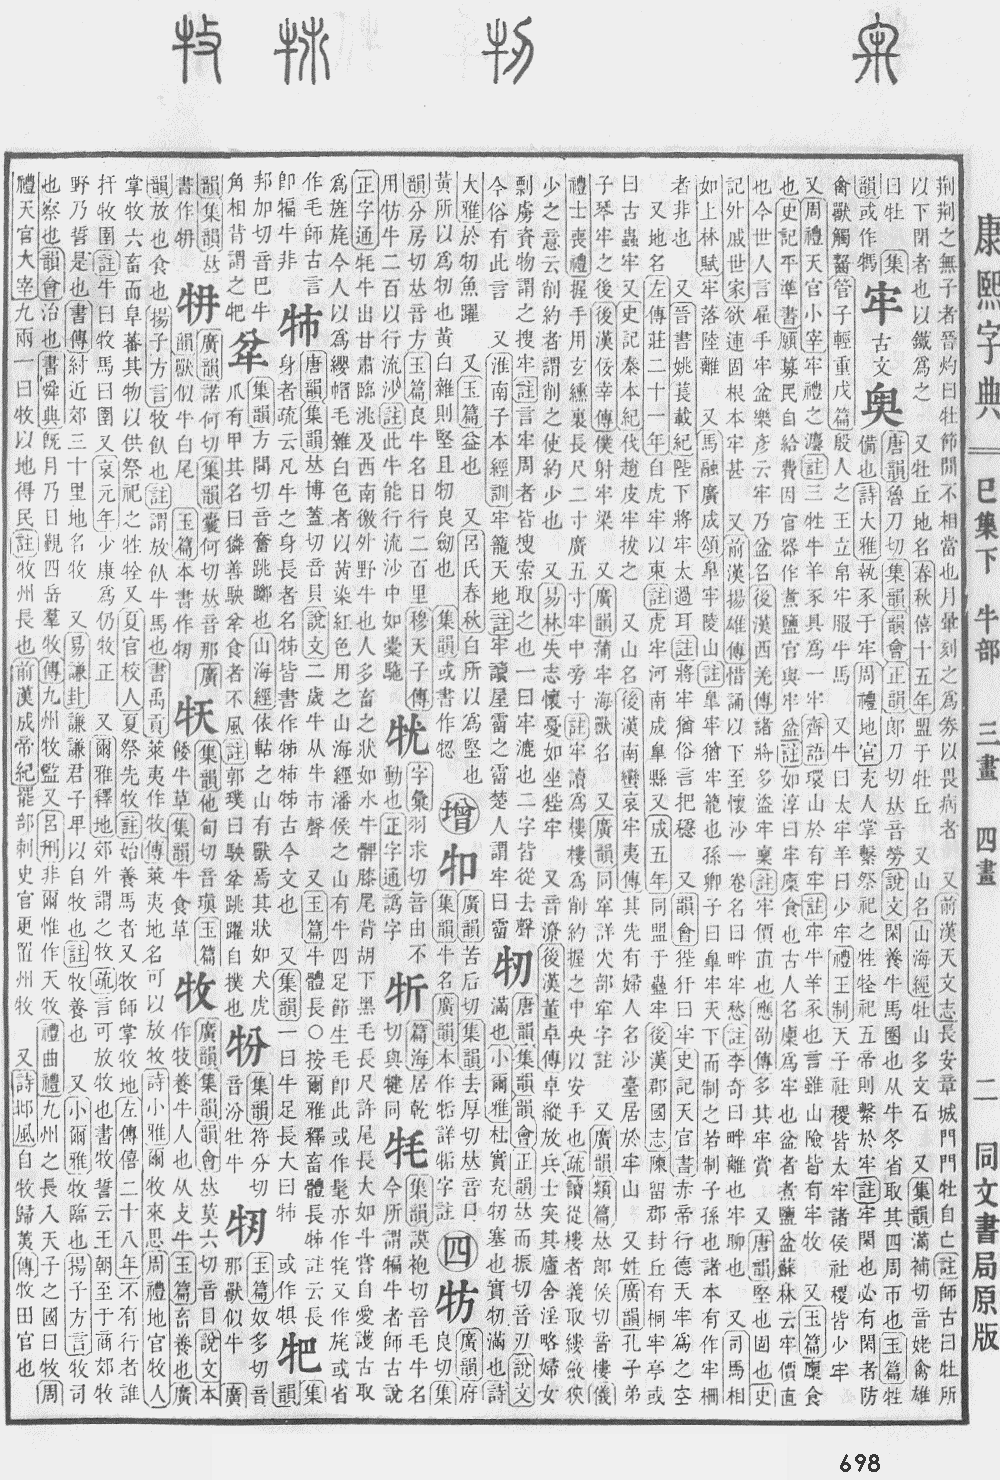 康熙字典 巳集下 牛部 三畫 四畫 二 同文書局原版
荆荆之無子者晉灼曰牡節閒不相當也月暈刻之爲劵以畏病者 又前漢天文志長安章城門門牡自亡註師古曰牡所
以下閉者也以鐵爲之 又牡丘地名春秋僖十五年盟于牡丘 又山名山海經牡山多文石 又集韻滿補切音姥禽雄
曰牡 集
韻或作㹑
禽獸觸齧
牢
古文
𡨄
唐韻魯刀切集韻韻會正韻郎刀切𠀤音勞說文閑養牛馬圈也从牛冬省取其四周帀也玉篇牲
備也詩大雅執豕于牢周禮地官充人掌繫祭祀之牲牷祀五帝則繫於牢註牢閑也必有閑者防
管子輕重戊篇殷人之王立帛牢服牛馬 又牛曰太牢羊曰少牢禮王制天子社稷皆太牢諸侯社稷皆少牢
又周禮天官小宰牢禮之灋註三牲牛羊豕具爲一牢齊語環山於有牢註牢牛羊豕也言雖山險皆有牢牧 又玉篇廩食
也史記平準書願募民自給費因官器作煮鹽官與牢盆註如淳曰牢廩食也古人名廩爲牢也盆者煮鹽盆蘇林云牢價直
也今世人言雇手牢盆樂彥云牢乃盆名後漢西羌傳諸將多盜牢稟註牢價直也應劭傳多其牢賞 又唐韻堅也固也史
記外戚世家欲連固根本牢甚 又前漢揚雄傳惜誦以下至懷沙一卷名曰畔牢愁註李奇曰畔離也牢聊也 又司馬相
如上林賦牢落陸離 又馬融廣成頌皐牢陵山註皐牢猶牢籠也孫卿子曰皐牢天下而制之若制子孫也諸本有作牢柵
者非也 又晉書姚萇載紀陛下將牢太過耳註將牢猶俗言把穩 又韻會狴犴曰牢史記天官書赤帝行德天牢爲之空
又地名左傳莊二十一年自虎牢以東註虎牢河南成臯縣又成五年同盟于蟲牢後漢郡國志陳留郡封丘有桐牢亭或
曰古蟲牢又史記秦本紀伐趙皮牢拔之 又山名後漢南蠻哀牢夷傳其先有婦人名沙臺居於牢山 又姓廣韻孔子弟
子琴牢之後後漢佞幸傳僕射牢梁 又廣韻蒲牢海獸名 又廣韻同窂詳穴部窂字註 又廣韻類篇𠀤郎侯切音樓儀
禮士喪禮握手用玄纁裏長尺二寸廣五寸牢中旁寸註牢讀爲樓樓爲削約握之中央以安手也疏讀從樓者義取縷斂狹
少之意云削約者謂削之使約少也 又易林失志懷憂如坐狴牢 又音潦後漢董卓傳卓縱放兵士突其廬舍淫略婦女
剽虜資物謂之搜牢註言牢固者皆搜索取之也一曰牢漉也二字皆從去聲
今俗有此言 又淮南子本經訓牢籠天地註牢讀屋霤之霤楚人謂牢曰霤
牣
唐韻集韻韻會正韻𠀤而振切音刃說文
滿也小爾雅杜實充牣塞也實牣滿也詩
大雅於牣魚躍 又玉篇益也 又呂氏春秋白所以爲堅也
黃所以爲牣也黃白雜則堅且牣良劒也 集韻或書作㸾
增
𤘘
廣韻苦后切集韻去厚切𠀤音口
集韻牛名廣韻本作㸸詳㸸字註
四
牥
廣韻府
良切集
韻分房切𠀤音方玉篇良牛名日行二百里穆天子傳
用牥牛二百以行流沙註此牛能行流沙中如橐駞
㹤
字彙羽求切音由不
動也正字通譌字
㸫
篇海居乾
切與犍同
牦
集韻謨袍切音毛牛名
今所謂犏牛者師古說
正字通牦牛出甘肅臨洮及西南徼外野牛也人多畜之狀如水牛髀膝尾背胡下黑毛長尺許尾長大如斗嘗自愛護古取
爲旌旄今人以爲纓帽毛雜白色者以茜染紅色用之山海經潘侯之山有牛四足節生毛即此或作髦亦作㹈又作旄或省
作毛師古言
卽犏牛非
㸬
唐韻集韻𠀤博蓋切音貝說文二歲牛从牛市聲 又玉篇牛體長〇按爾雅釋畜體長㸬註云長
身者疏云凡牛之身長者名㸬皆書作㸬㸬古今文也 又集韻一曰牛足長大曰㸬 或作犋
㸭
集
韻
邦加切音巴牛
角相背謂之㸭
㸞
集韻方問切音奮跳躑也山海經依軲之山有獸焉其狀如犬虎
爪有甲其名曰獜善駚㸞食者不風註郭璞曰駚㸞跳躍自撲也
㸮
集韻符分切
音汾牡牛
𤘤
玉篇奴多切音
那獸似牛 廣
韻集韻𠀤
書作𤘽
𤘽
廣韻諾何切集韻囊何切𠀤音那廣
韻獸似牛白尾 玉篇本書作𤘤
𤘡
集韻他甸切音瑱玉篇
餧牛草集韻牛食草
牧
廣韻集韻韻會𠀤莫六切音目說文本
作牧養牛人也从攴牛玉篇畜養也廣
韻放也食也揚子方言牧飤也註謂放飤牛馬也書禹貢萊夷作牧傳萊夷地名可以放牧詩小雅爾牧來思周禮地官牧人
掌牧六畜而阜蕃其物以供祭祀之牲牷又夏官校人夏祭先牧註始養馬者又牧師掌牧地左傳僖二十八年不有行者誰
扞牧圉註牛曰牧馬曰圉又哀元年少康爲仍牧正 又爾雅釋地郊外謂之牧疏言可放牧也書牧誓云王朝至于商郊牧
野乃誓是也書傳紂近郊三十里地名牧 又易謙卦謙謙君子卑以自牧也註牧養也 又小爾雅牧臨也揚子方言牧司
也察也韻會治也書舜典旣月乃日觀四岳羣牧傳九州牧監又呂刑非爾惟作天牧禮曲禮九州之長入天子之國曰牧周
禮天官大宰九兩一曰牧以地得民註牧州長也前漢成帝紀罷部刺史官更置州牧 又詩邶風自牧歸荑傳牧田官也
698